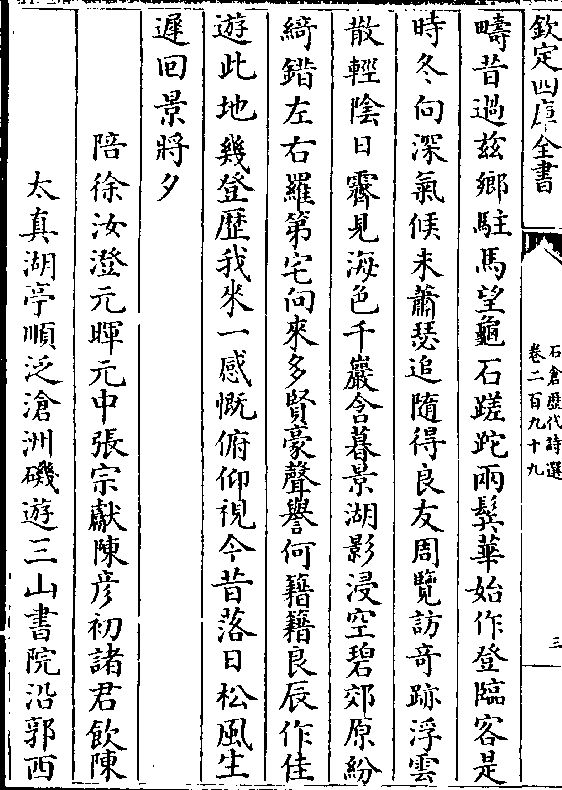 欽定四庫全書
石倉歷代詩選
卷二百九十九
三
疇昔過兹鄉駐馬望龜石蹉跎兩鬂華始作登臨客是
時冬向深氣候未蕭瑟追隨得良友周覽訪竒跡浮雲
散輕陰日霽見海色千巖含暮景湖影浸空碧郊原紛
綺錯左右羅第宅向來多賢豪聲譽何籍籍良辰作佳
遊此地幾登歴我來一感慨俯仰視今昔落日松風生
遲回景將夕
陪徐汝澄元暉元中張宗獻陳彦初諸君飲陳
太真湖亭順泛滄洲磯遊三山書院沿郭西